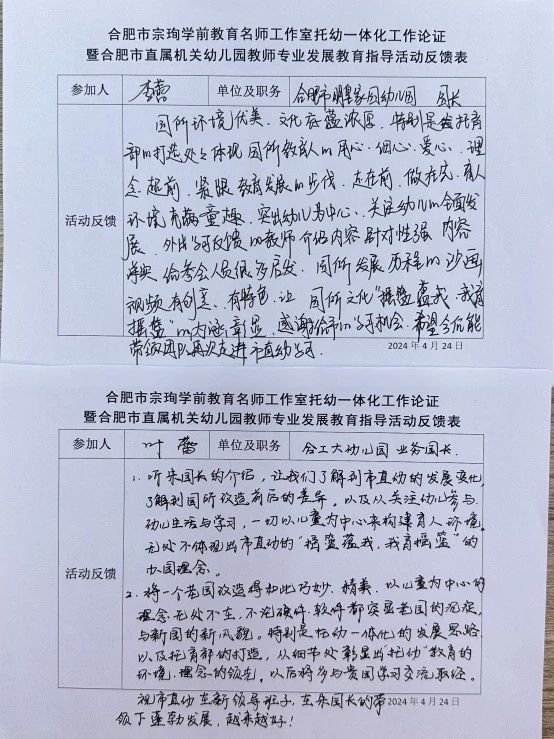 合肥市宗珣学前教育名师工作室托幼一体化工作论证
暨合肥市直属机关幼儿园教师专业发展教育指导活动反馈表
参加人 李蕾 单位及职务 合肥市 家园幼儿园 园长
活动反馈
园所环境优美、文化底蕴浓厚,特别是 托育
部的打造处处体现园所教育人的用心、细心、爱心,理
念超前,紧跟教育发展的步伐,走在前,做在先,育人
环境充满童趣,突出幼儿为中心,关注幼儿的全面发
展。外出学习反馈的教师介绍内容针对性强,内容
详实,给参会人员很多启发,园所发展历程的沙画
视频有创意、有特色,让园所文化“摇篮蕴我,我育
摇篮”的内涵彰显,感谢给予的学习机会,希望今后能
带领团队再次走进市直幼学习。
2024年4月24日
合肥市宗珣学前教育名师工作室托幼一体化工作论证
暨合肥市直属机关幼儿园教师专业发展教育指导活动反馈表
参加人 叶蕾 单位及职务 合工大幼儿园 业务园长
活动反馈
1. 听朱园长的介绍,让我们了解到市直幼的发展变化,
了解到园所改造前后的差异,以及从关注幼儿参与、
幼儿生活与学习,一切以儿童为中心来构建育人环境,
无处不体现出市直幼的“摇篮蕴我,我育摇篮”的
办园理念。
2. 将一个老园改造得如此巧妙、精美,以儿童为中心的
理念无处不在,不论硬件、软件都突显老园的沉淀,
与新园的新风貌。特别是托幼一体化的发展思路
以及托育部的打造,从细节处彰显出托幼“教育的
环境、理念的领先。以后将多与贵园学习交流取经。
祝市直幼在新领导班子,在朱园长的带 2024年4月24日
领下蓬勃发展,越来越好!